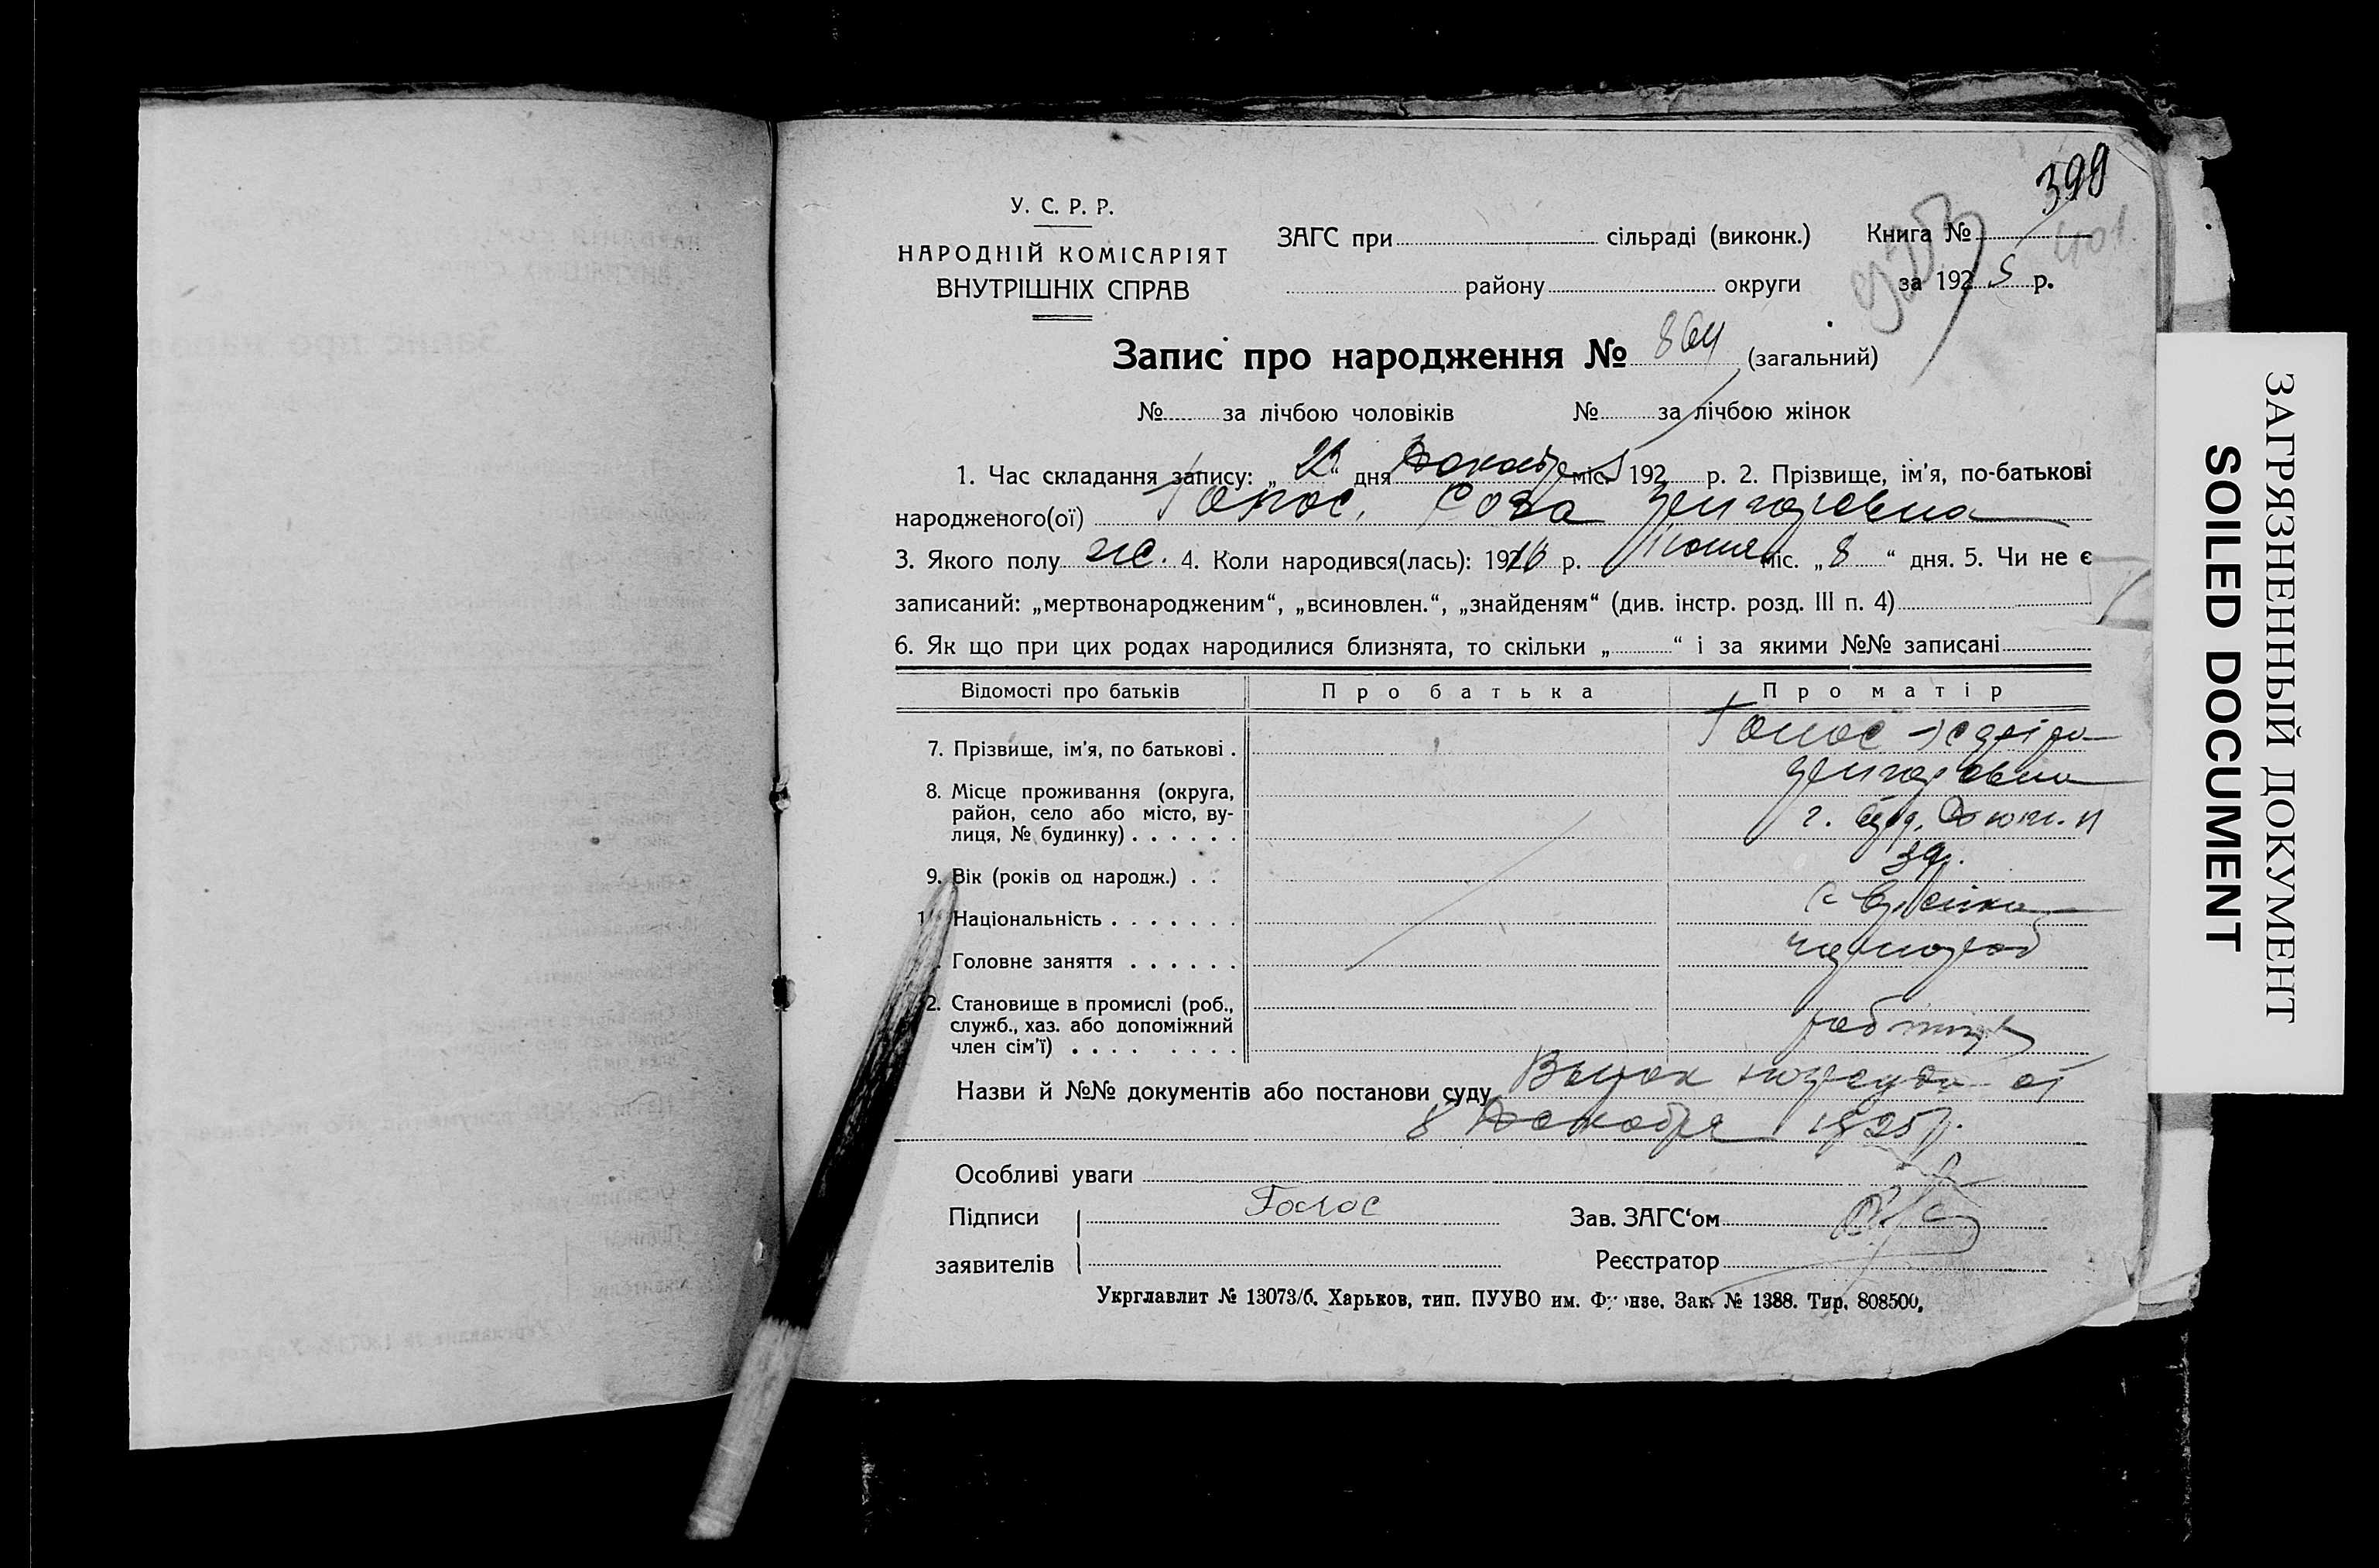 399
401
У. С. Р. Р.
НАРОДНІЙ КОМІСАРІЯТ
ВНУТРІШНІХ СПРАВ
ЗАГС при сільраді (виконк.) Книга №
району округи за 1925 р.
Запис про народження № 864 (загальний)
№ за лічбою чоловіків № за лічбою жінок
1. Час складання запису: „ 23 “ дня Декабр міс. 192 5 р. 2. Прізвище, ім'я, по-батькові
народженого(ої) Голос,
3. Якого полу ж. 4. Коли народився(лась): 1916 р. міс. „ 8 “ дня. 5. Чи не є
записаний: „мертвонародженим“, „всиновлен.“, „знайденям“ (див. інстр. розд. III п. 4)
6. Як що при цих родах народилися близнята, то скільки „ “ і за якими №№ записані
Відомості про батьків Про батька Про матір
7. Прізвище, ім'я, по батькові . Голос
8. Місце проживання (округа,
район, село або місто, ву-
лиця, № будинку) . . . . . .
9. Вік (років од народж.) . .
Національність . . . . . . .
Головне заняття . . . . . .
2. Становище в промислі (роб.,
служб., хаз. або допоміжний
член сім'ї) . . . . . . . .
Назви й №№ документів або постанови суду нарсуда от
8 Декабря 1925 г.
Особливі уваги
Підписи Голос Зав. ЗАГС'ом
заявителів Реєстратор
Укрглавлит № 13073/б. Харьков, тип. ПУУВО им. Фрунзе. Зак. № 1388. Тир. 808500.
ЗАГРЯЗНЕННЫЙ ДОКУМЕНТ
SOILED DOCUMENT